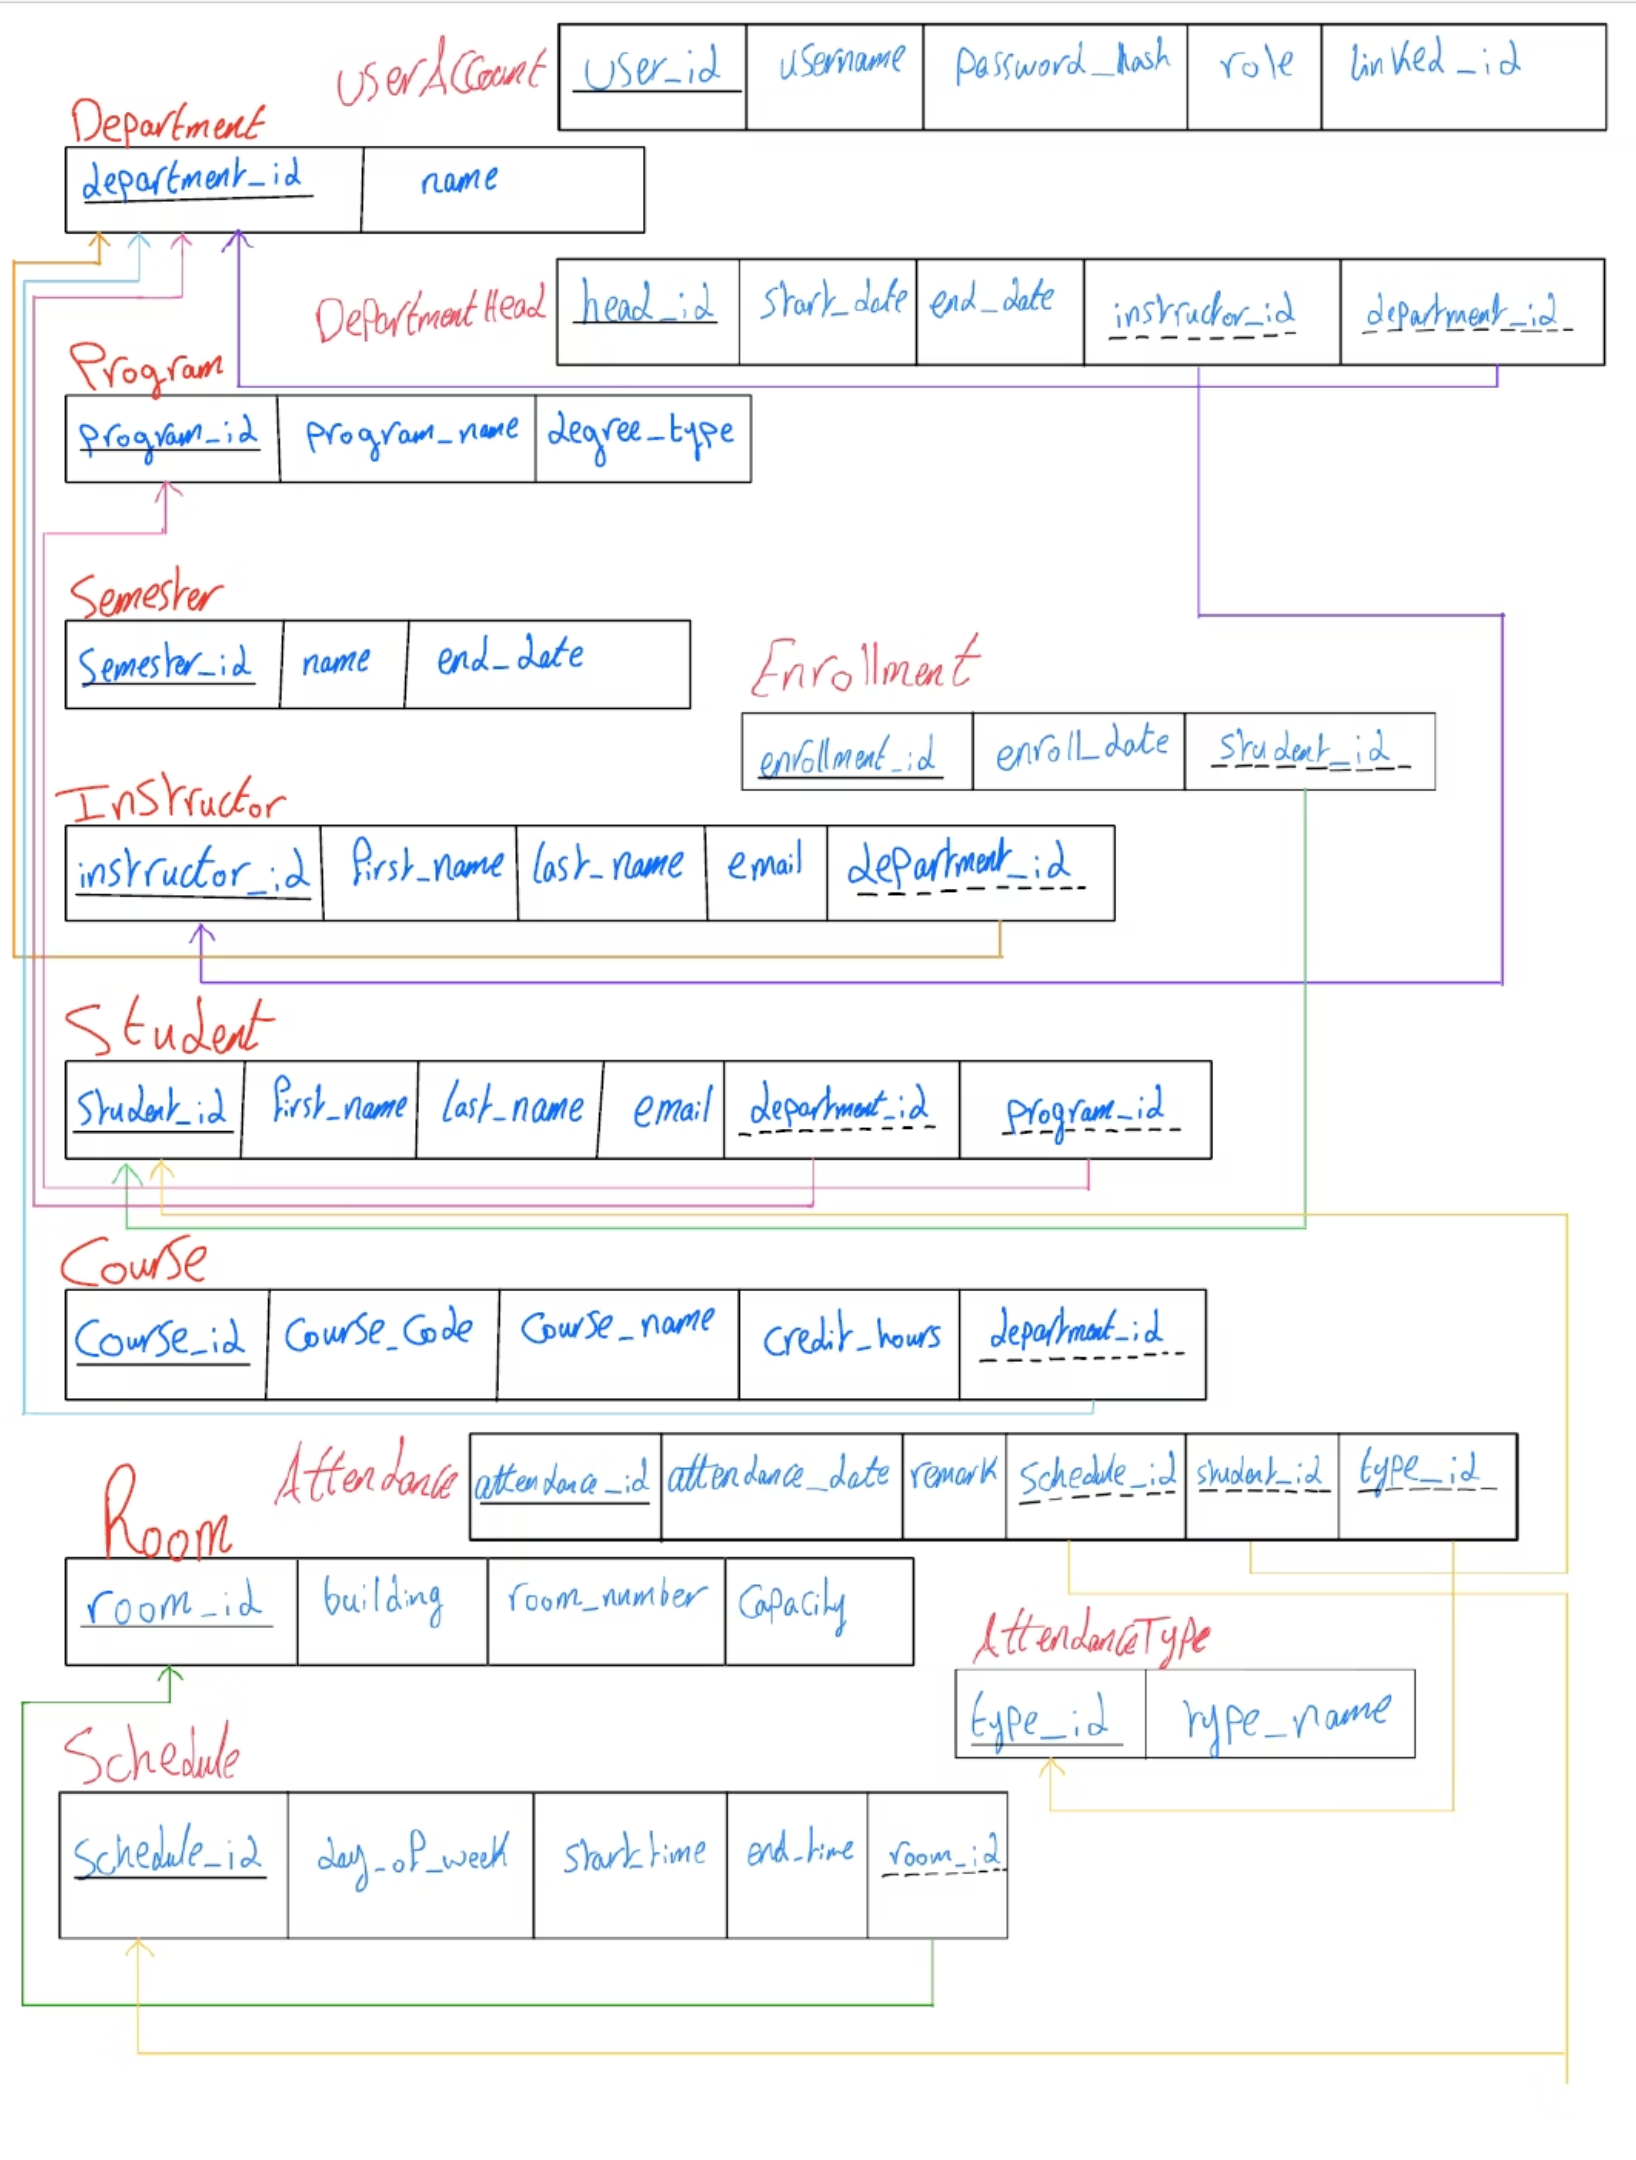 UserAccount
user_id username password_hash role linked_id
Department
department_id name
DepartmentHead
head_id start_date end_date instructor_id department_id
Program
program_id program_name degree_type
Semester
Semester_id name end_date
Enrollment
enrollment_id enroll_date student_id
Instructor
instructor_id first_name last_name email department_id
Student
student_id first_name last_name email department_id program_id
Course
Course_id Course_Code Course_name credit_hours department_id
Attendance
attendance_id attendance_date remark Schedule_id student_id type_id
Room
room_id building room_number Capacity
AttendanceType
type_id type_name
Schedule
Schedule_id day_of_week start_time end_time room_id